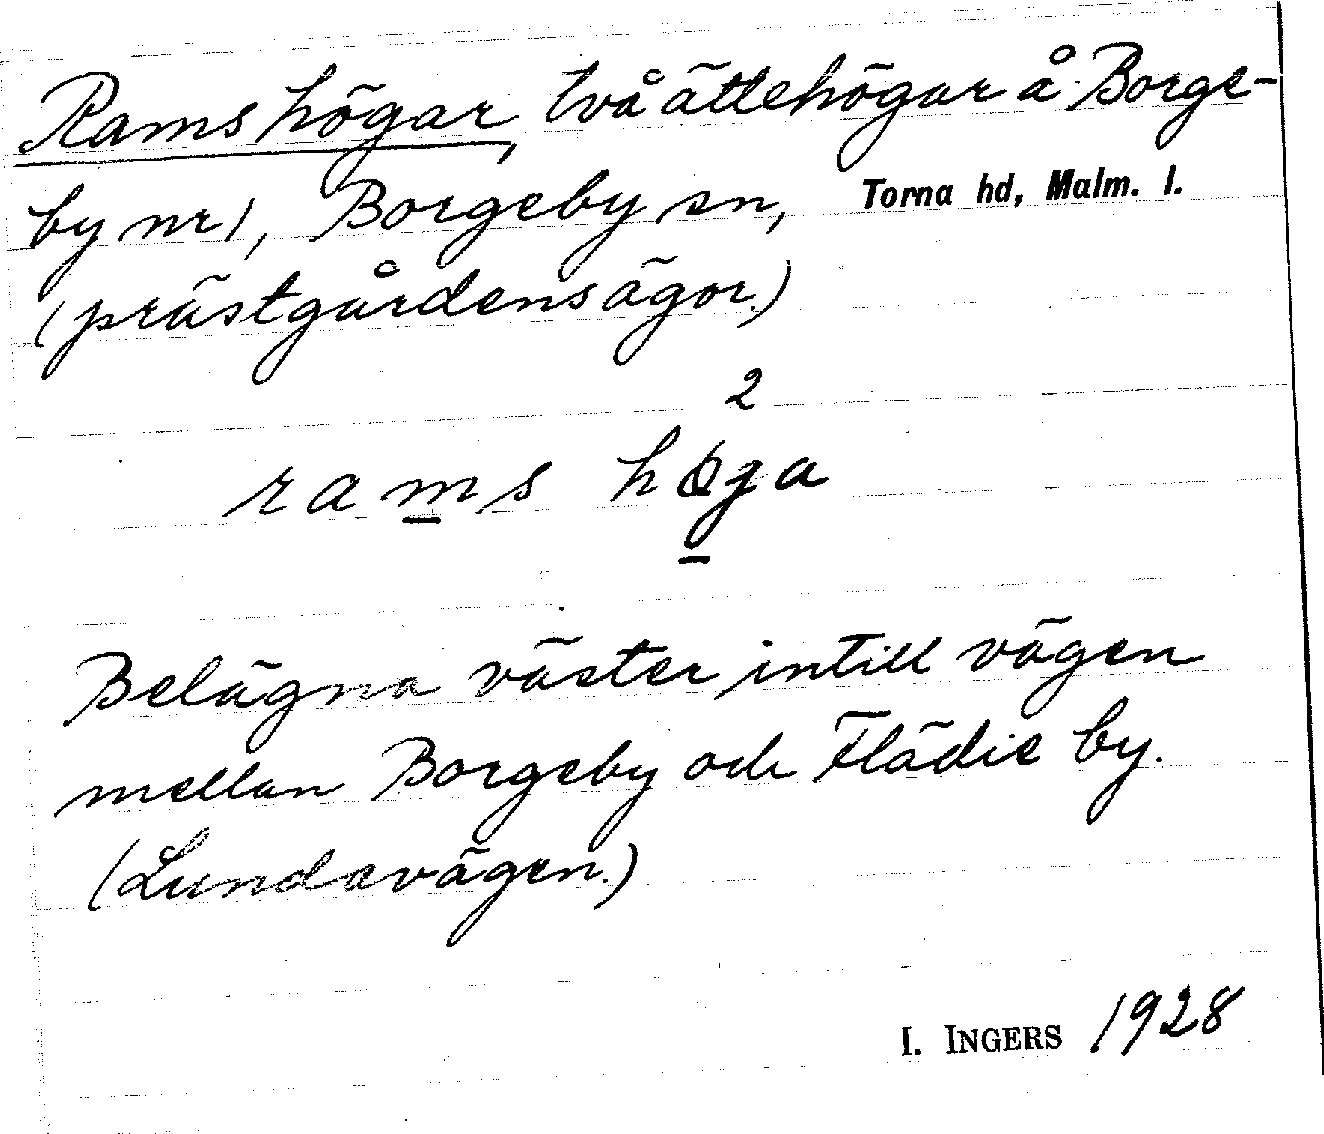 Ramshögar, två ättehögar å Borge-
by nr 1, Borgeby sn, Torna hd, Malm. l.
(prästgårdens ägor.)
2
rams høga
Belägna väster intill vägen
mellan Borgeby och Flädie by.
(Lundavägen.)
I. INGERS 1928